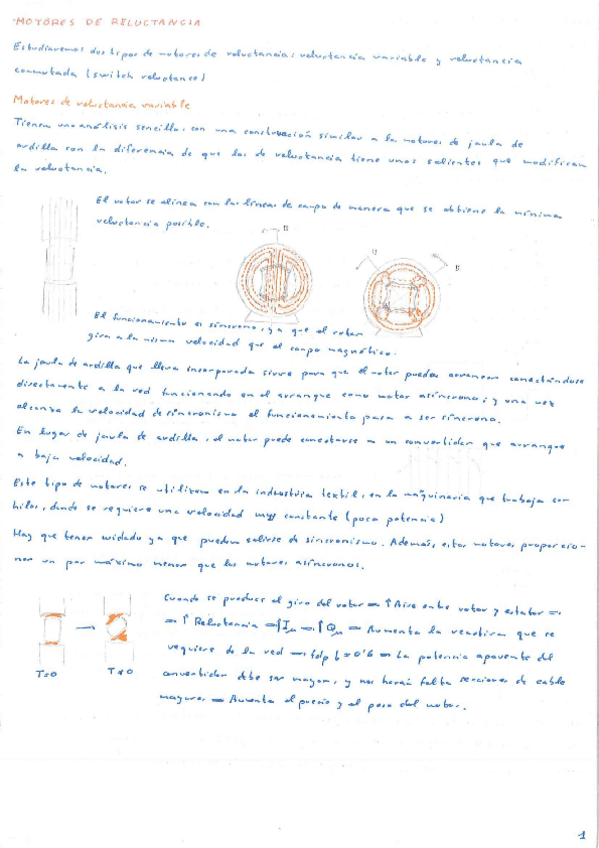 MOTORES DE RELUCTANCIA
Estudiaremos dos tipos de motores de reluctancia: reluctancia variable y reluctancia
conmutada (switch reluctance)
Motores de reluctancia variable
Tienen un análisis sencillo, con una construcción similar a la motores de jaula de
ardilla con la diferencia de que los de reluctancia tiene unos salientes que modifican
la reluctancia.
El rotor se alinea con las líneas de campo de manera que se obtiene la mínima
reluctancia posible.
El funcionamiento es síncrono, ya que el rotor
gira a la misma velocidad que el campo magnético.
La jaula de ardilla que lleva incorporada sirve para que el rotor pueda arrancar conectándose
directamente a la red funcionando en el arranque como motor asíncrono, y una vez
alcanza la velocidad de sincronismo el funcionamiento pasa a ser síncrono.
En lugar de jaula de ardilla, el motor puede conectarse a un convertidor que arranque
a baja velocidad.
Este tipo de motores se utilizan en la industria textil, en la maquinaria que trabaja con
hilos, donde se requiere una velocidad muy constante (poca potencia)
Hay que tener cuidado ya que pueden salirse de sincronismo. Además, estos motores proporcio-
nan un par máximo menor que los motores asíncronos.
Cuando se produce el giro del rotor ⇒ ↑ Aire entre rotor y estator ⇒
⇒ ↑ Reluctancia ⇒ ↑Iμ ⇒ ↑Qμ ⇒ Aumenta la reactiva que se
requiere de la red ⇒ fdp ↓ ≈ 0'6 ⇒ La potencia aparente del
convertidor debe ser mayor, y nos harán falta secciones de cable
mayores ⇒ Aumenta el precio y el peso del motor.
T=0 T≠0
1